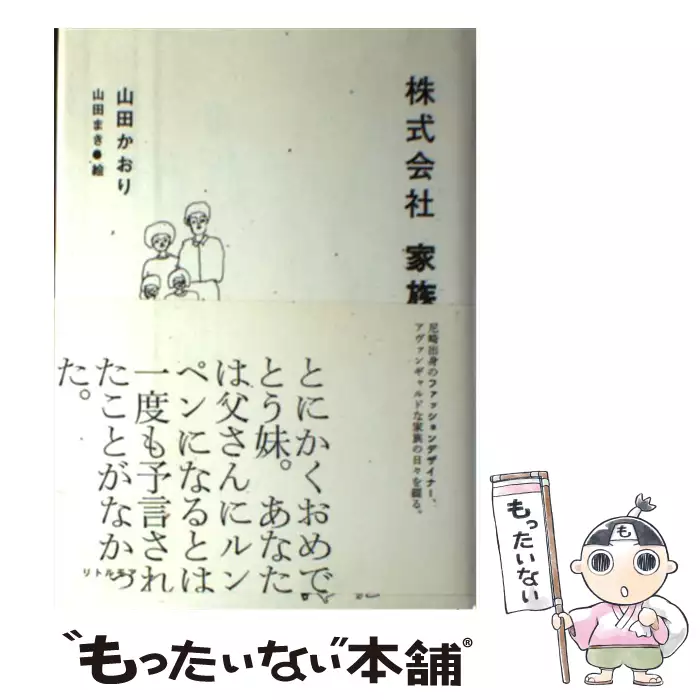 株式会社 家族
山田かおり
山田まき●絵
尼崎出身のファッションデザイナー、
アヴァンギャルドな家族の日々を綴る。
とにかくおめで
とう妹。あなた
は父さんにルン
ペンになるとは
一度も予言され
たことがなかっ
た。
リトルモア
も
もったいない
"もったいない本舗"®